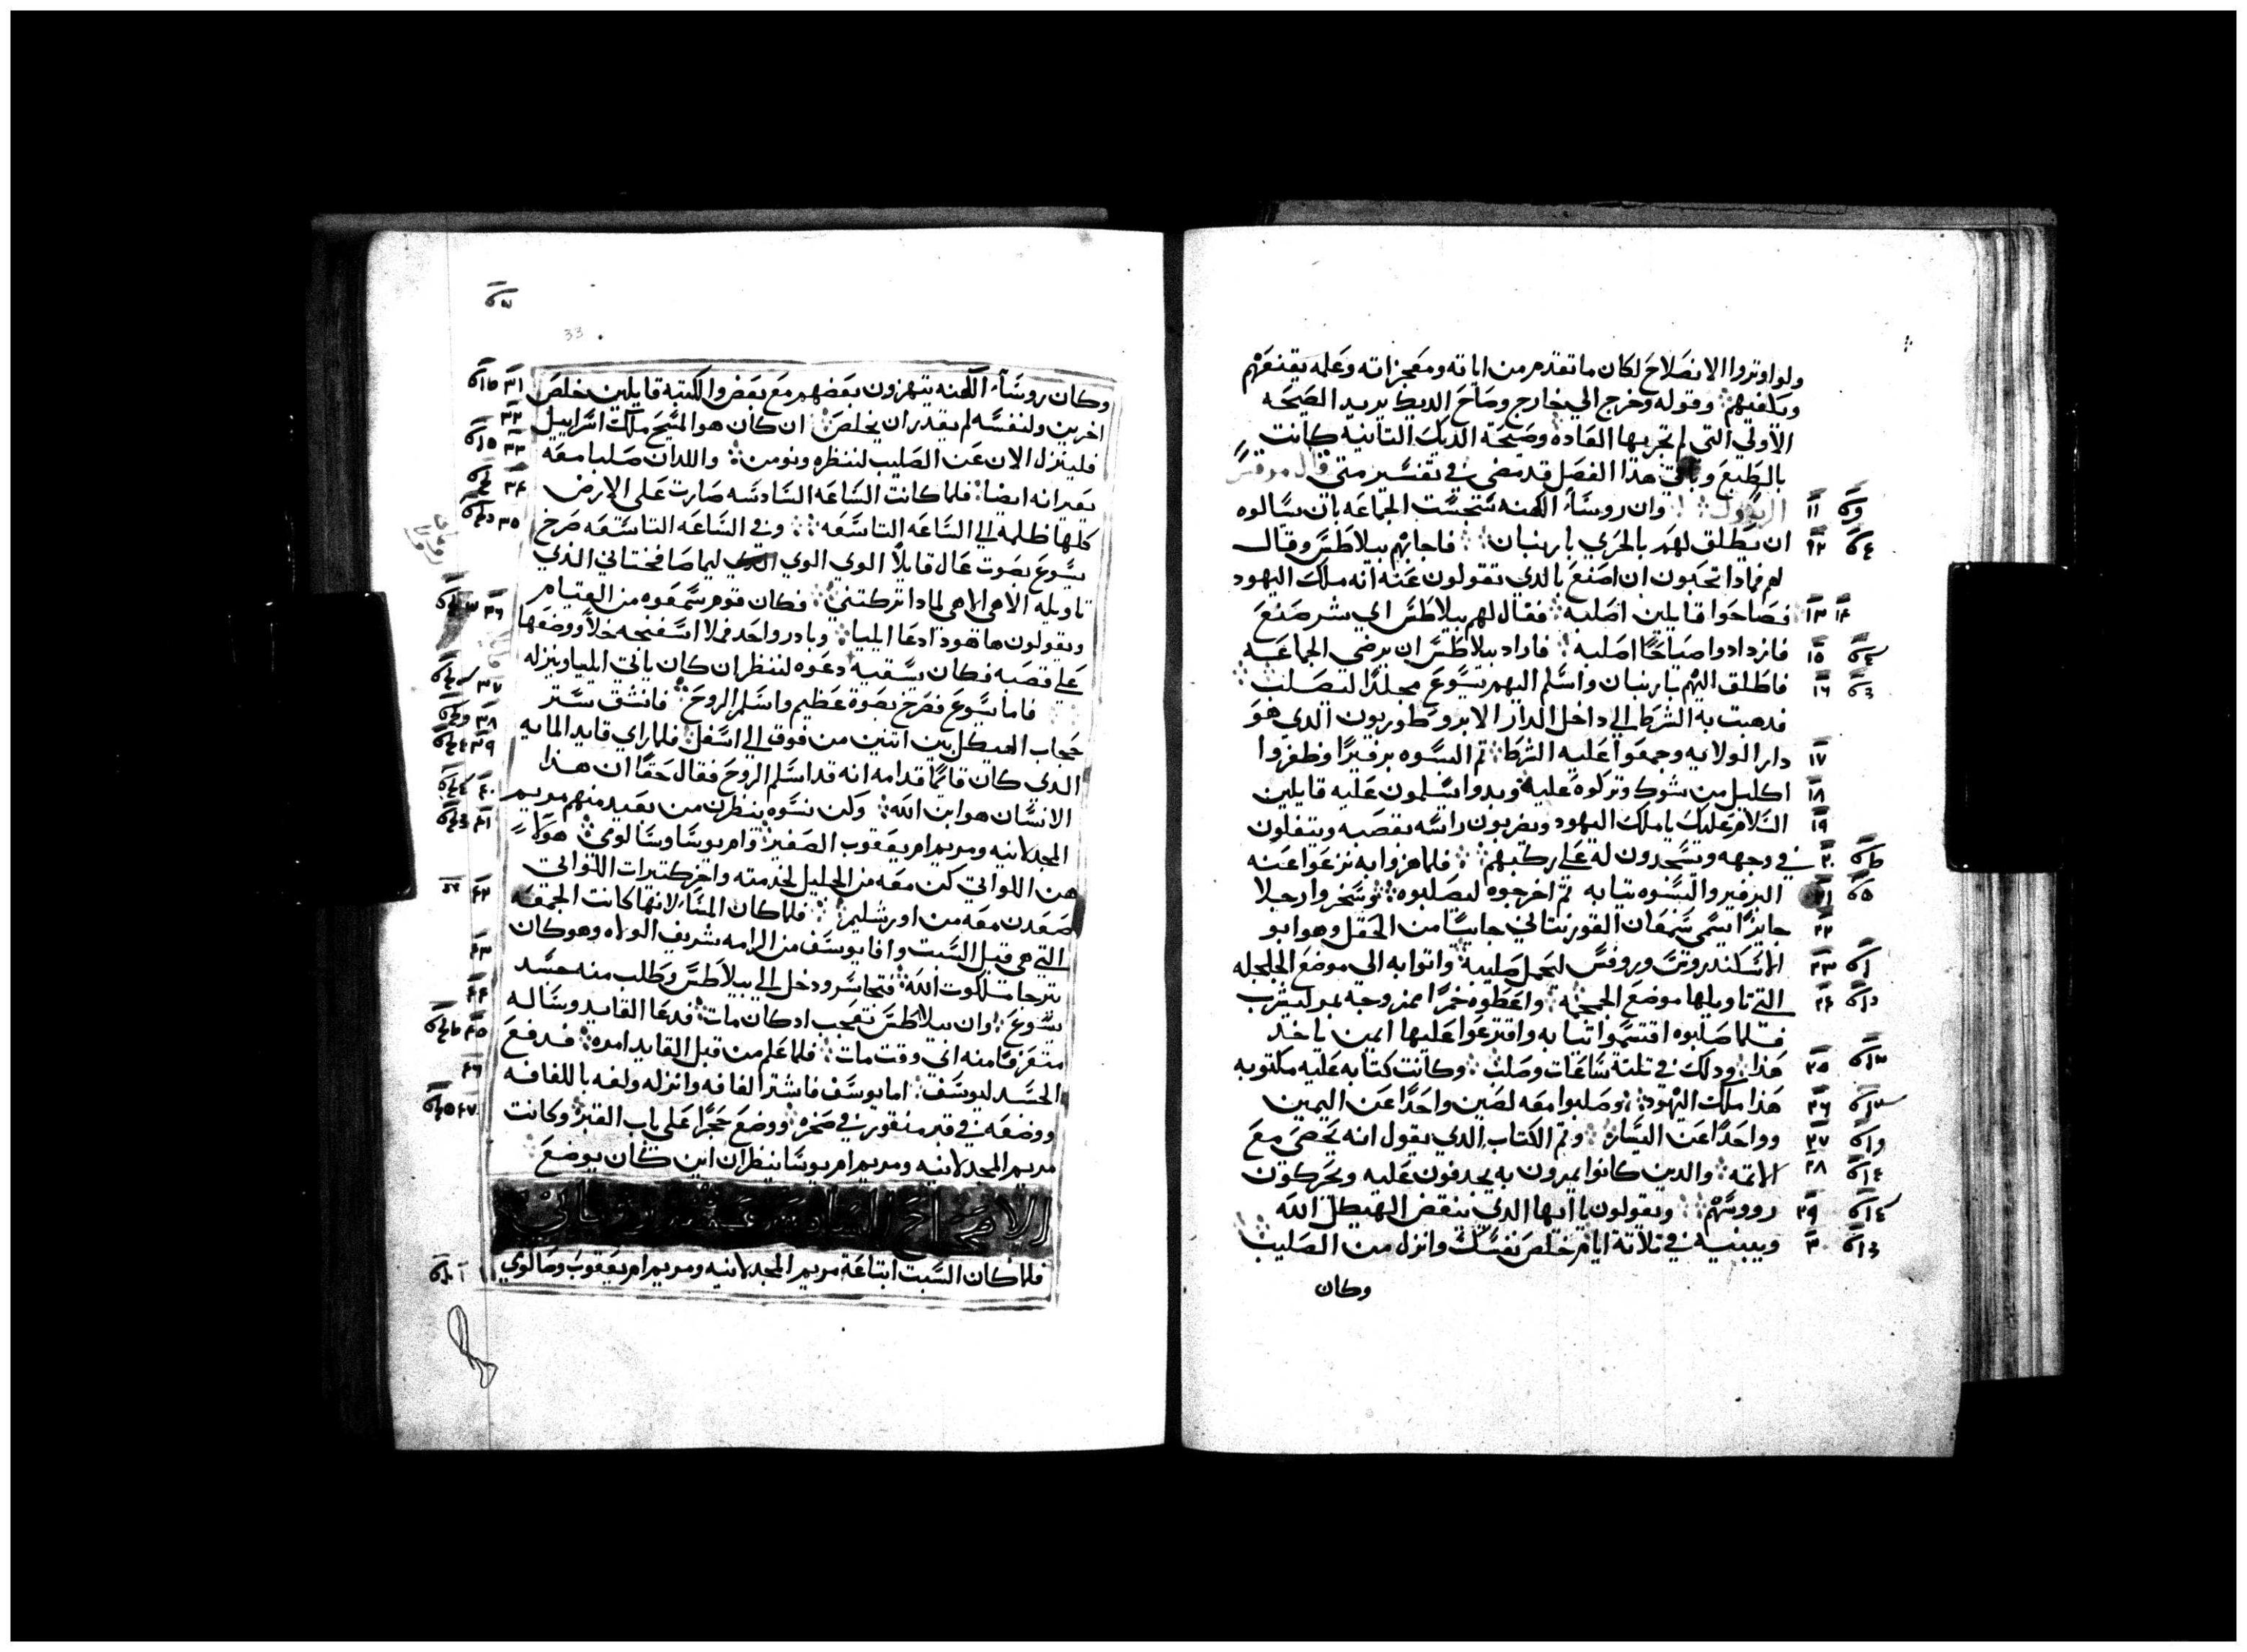 ولو اوتروا الانصلاح لكان ما تقدم من اياته ومعجزاته وعمله يقنعهم
ويكفيهم وقوله وخرج الي خارج وصاح الديك يريد الصيحه
الاولي التي لم تجر بها العاده وصيحة الديك التانيه كانت
بالطبع وباقي هذا الفصل قد مضي في تفسير متى قال مرقس
وان روسا الكهنه سجست الجماعه بان يسالوه
١١
ان يطلق لهم بالحري بارنبان فاجابهم بيلاطس وقال
١٢
لهم فمادا تحبون ان اصنع بالدي تقولون عنه انه ملك اليهود
فصاحوا قايلين اصلبه فقال لهم بيلاطس اي شر صنع
١٣ ١٤
فازدادوا صياحًا اصلبه فاراد بيلاطس ان يرضي الجماعه
١٥
فاطلق اليهم بارنبان واسلم اليهم يسوع مجلدًا ليصلب
١٦
فدهبت به الشرط الي داخل الدار الابروطوريون الدي هو
دار الولايه وجمعوا عليه الشرط تم البسوه برفيرًا وظفروا
١٧
اكليل من شوك وتركوه عليه وبدوا يسلمون عليه قايلين
١٨
السلام عليك يا ملك اليهود ويضربون راسه بقصبه ويتفلون
١٩
في وجهه ويسجدون له على ركبهم فلما هزوا به نزعوا عنه
٢٠
البرفير والبسوه تيابه تم اخرجوه ليصلبوه وسخروا رجلا
٢١
جايزًا يسمى سمعان القورنياني جاييًا من الحقل وهو ابو
٢٢
الاسكندروس وروفس ليحمل صليبه واتوا به الى موضع الجلجله
٢٣
التي تاويلها موضع الجمجمه واعطوه خمرًا ممزوجه بمر ليشرب
٢٤
فلما صلبوه اقتسموا تيابه واقترعوا عليها ايمن ياخد
هذا ودلك في تلتة ساعات وصلب وكانت كتابه عليه مكتوبه
٢٥
هذا ملك اليهود وصلبوا معه لصين واحدًا عن اليمين
٢٦
وواحدًا عن اليسار وتم الكتاب الدي يقول انه يحصى مع
٢٧
الاتمه والدين كانوا يمرون به يجدفون عليه ويحركون
٢٨
رووسهم ويقولون يا ايها الدي ينقض الهيكل الله
٢٩
ويبنيه في تلاتة ايام خلص نفسك وانزل من الصليب
٣٠
وكان
33
وكان روسا الكهنه يتهزون بعضهم مع بعض والكتبه قايلين خلص
٣١
اخرين ولنفسه لم يقدر ان يخلص ان كان هو المسيح ملك اسراييل
٣٢
فلينزل الان عن الصليب لننظره ونومن واللدان صلبا معه
٣٣
يعيرانه ايضا فلما كانت الساعه السادسه صارت على الارض
٣٤
كلها ظلمه الي الساعه التاسعه وفي الساعه التاسعه صرخ
٣٥
يسوع بصوت عال قايلًا الوي الوي ليما صافختاني الذي
تاويله الاهي الاهي لمادا تركتني فكان قوم سمعوه من القيام
٣٦
ويقولون ها هودا دعا ايليا وبادر واحد فملا اسفنجه خلاً ووضعها
على قصبه فكان يسقيه دعوه لننظر ان كان ياتي ايليا وينزله
فاما يسوع فصرخ بصوة عظيم واسلم الروح فانشق ستر
٣٧
حجاب الهيكل بين اتنين من فوق الي اسفل فلما راي قايد المايه
٣٨ ٣٩
الدي كان قايمًا قدامه انه قد اسلم الروح فقال حقًا ان هذا
الانسان هو ابن الله ولكن نسوه ينظرن من بعيد منهم مريم
٤٠
المجدلانيه ومريم ام يعقوب الصغير وام يوسا وسالوي هولاي
٤١
هن اللواتي كن معه من الجليل لخدمته واخر كتيرات اللواتي
صعدن معه من اورشليم فلما كان المسا لانها كانت الجمعه
٤٢
التي هي قبل السبت وافا يوسف من الرامه شريف الوراه وهو كان
٤٣
يترجا ملكوت الله فتجاسر ودخل الي بيلاطس وطلب منه جسد
يسوع وان بيلاطس تعجب ادكان مات فدعا القايد وساله
٤٤
متعرفًا منه اني وقت مات فلما علم من قبل القايد امره فدفع
٤٥
الجسد ليوسف اما يوسف فاشترا لفافه وانزله ولفه باللفافه
٤٦
ووضعه في قبر منقور في صخره ووضع حجرًا على باب القبر وكانت
٤٧
مريم المجدلانيه ومريم ام يوسا ينظران اين كان يوضع
الاصحاح السادس عشر
فلما كان السبت ابتاعة مريم المجدلانيه ومريم ام يعقوب وصالوي
١